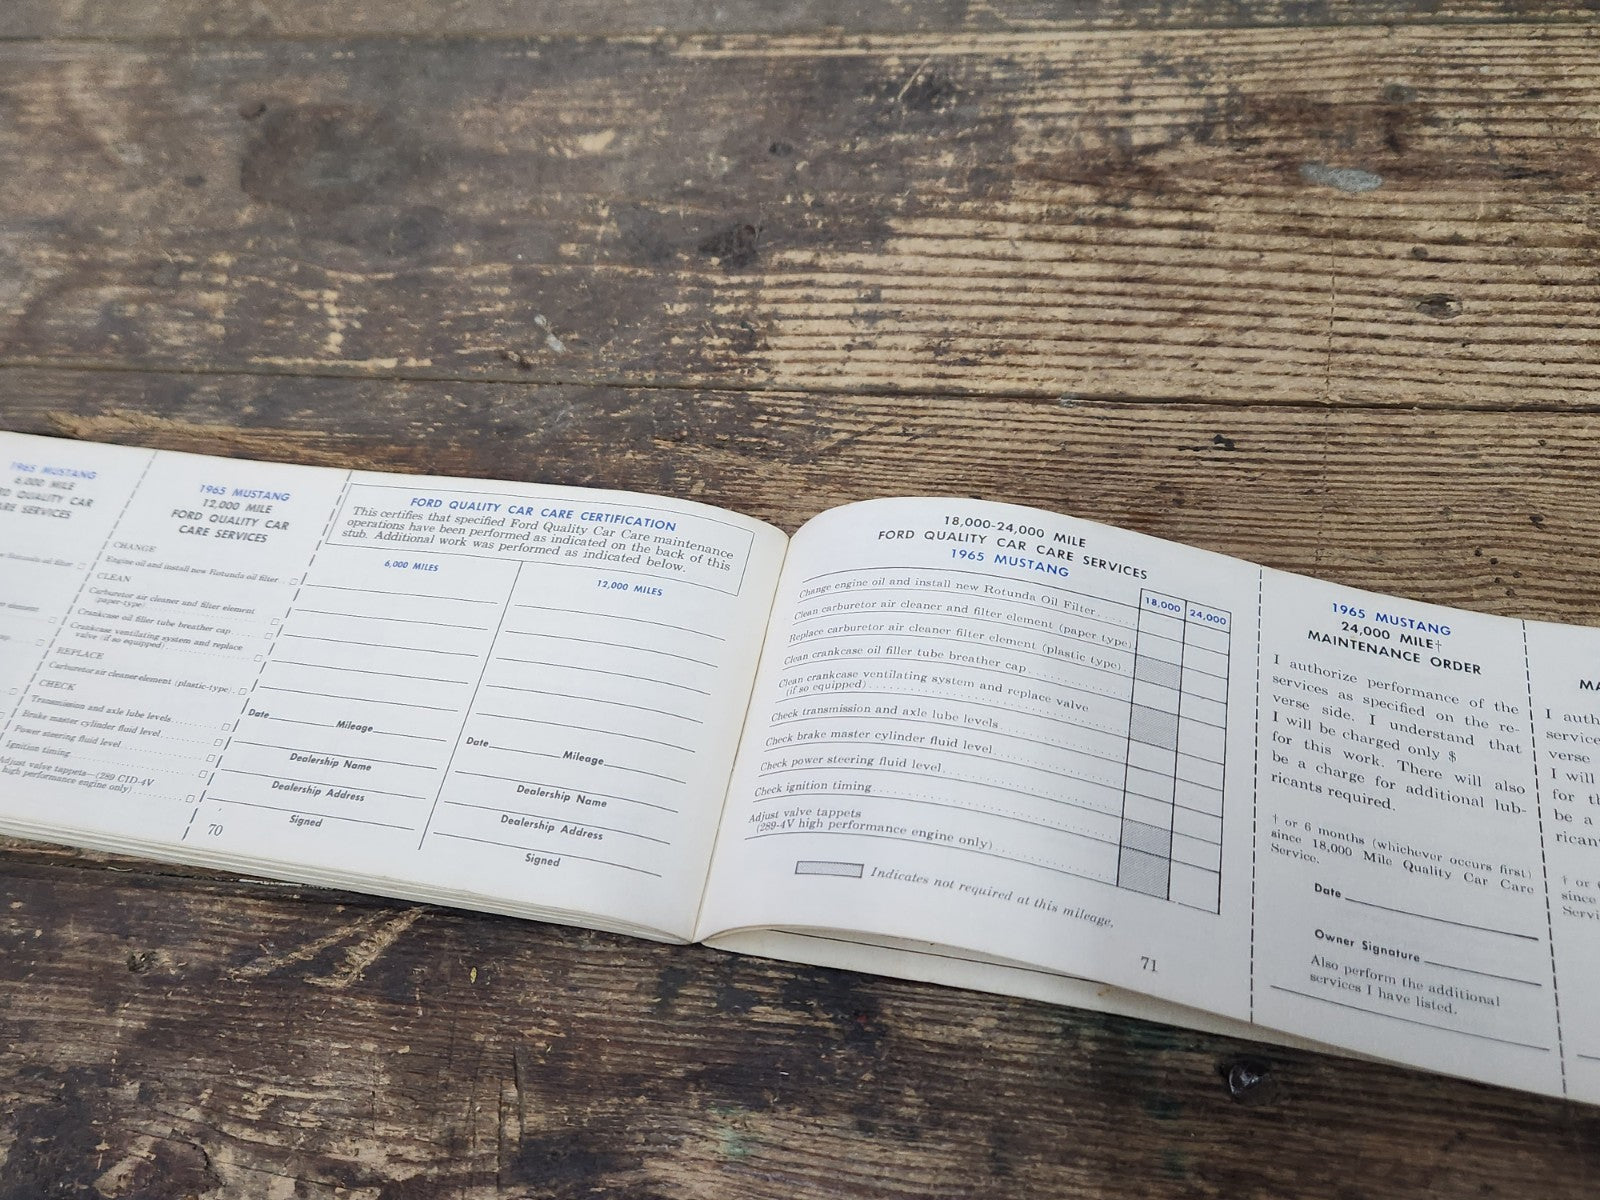 1965 MUSTANG
6,000 MILE
QUALITY CAR
SERVICES
Rotunda oil filter
element
1965 MUSTANG
12,000 MILE
FORD QUALITY CAR
CARE SERVICES
CHANGE
Engine oil and install new Rotunda oil filter
CLEAN
Carburetor air cleaner and filter element
(paper-type)
Crankcase oil filler tube breather cap
Crankcase ventilating system and replace
valve (if so equipped)
REPLACE
Carburetor air cleaner element (plastic-type)
CHECK
Transmission and axle lube levels
Brake master cylinder fluid level
Power steering fluid level
Ignition timing
Adjust valve tappets—(289 CID-4V
high performance engine only)
FORD QUALITY CAR CARE CERTIFICATION
This certifies that specified Ford Quality Car Care maintenance
operations have been performed as indicated on the back of this
stub. Additional work was performed as indicated below.
6,000 MILES
Date Mileage
Dealership Name
Dealership Address
Signed
12,000 MILES
Date Mileage
Dealership Name
Dealership Address
Signed
70
18,000-24,000 MILE
FORD QUALITY CAR CARE SERVICES
1965 MUSTANG
18,000 24,000
Change engine oil and install new Rotunda Oil Filter
Clean carburetor air cleaner and filter element (paper type)
Replace carburetor air cleaner filter element (plastic type)
Clean crankcase oil filler tube breather cap
Clean crankcase ventilating system and replace valve
(if so equipped)
Check transmission and axle lube levels
Check brake master cylinder fluid level
Check power steering fluid level
Check ignition timing
Adjust valve tappets
(289-4V high performance engine only)
Indicates not required at this mileage.
71
1965 MUSTANG
24,000 MILE†
MAINTENANCE ORDER
I authorize performance of the
services as specified on the re-
verse side. I understand that
I will be charged only $
for this work. There will also
be a charge for additional lub-
ricants required.
† or 6 months (whichever occurs first)
since 18,000 Mile Quality Car Care
Service.
Date
Owner Signature
Also perform the additional
services I have listed.
MA
I auth
service
verse
I will
for th
be a
rican
† or
since
Servi